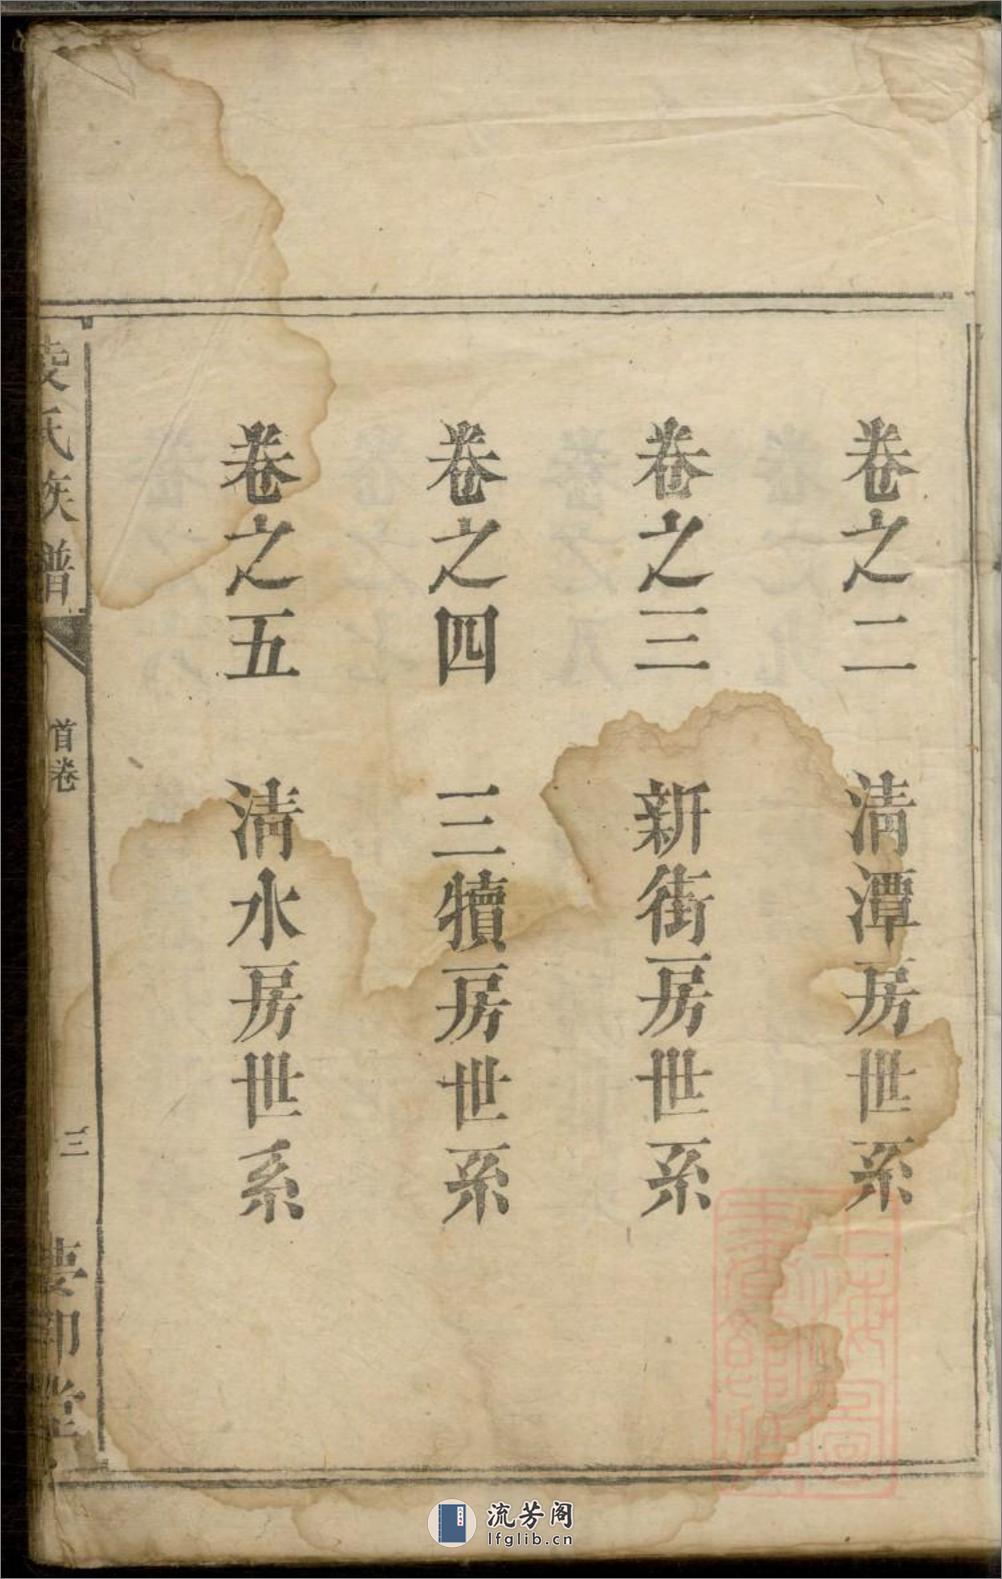 卷之二　清潭房世系
卷之三　新街房世系
卷之四　三犢房世系
卷之五　清水房世系
氏族譜
首卷
三
堂
流芳阁
lfglib.cn